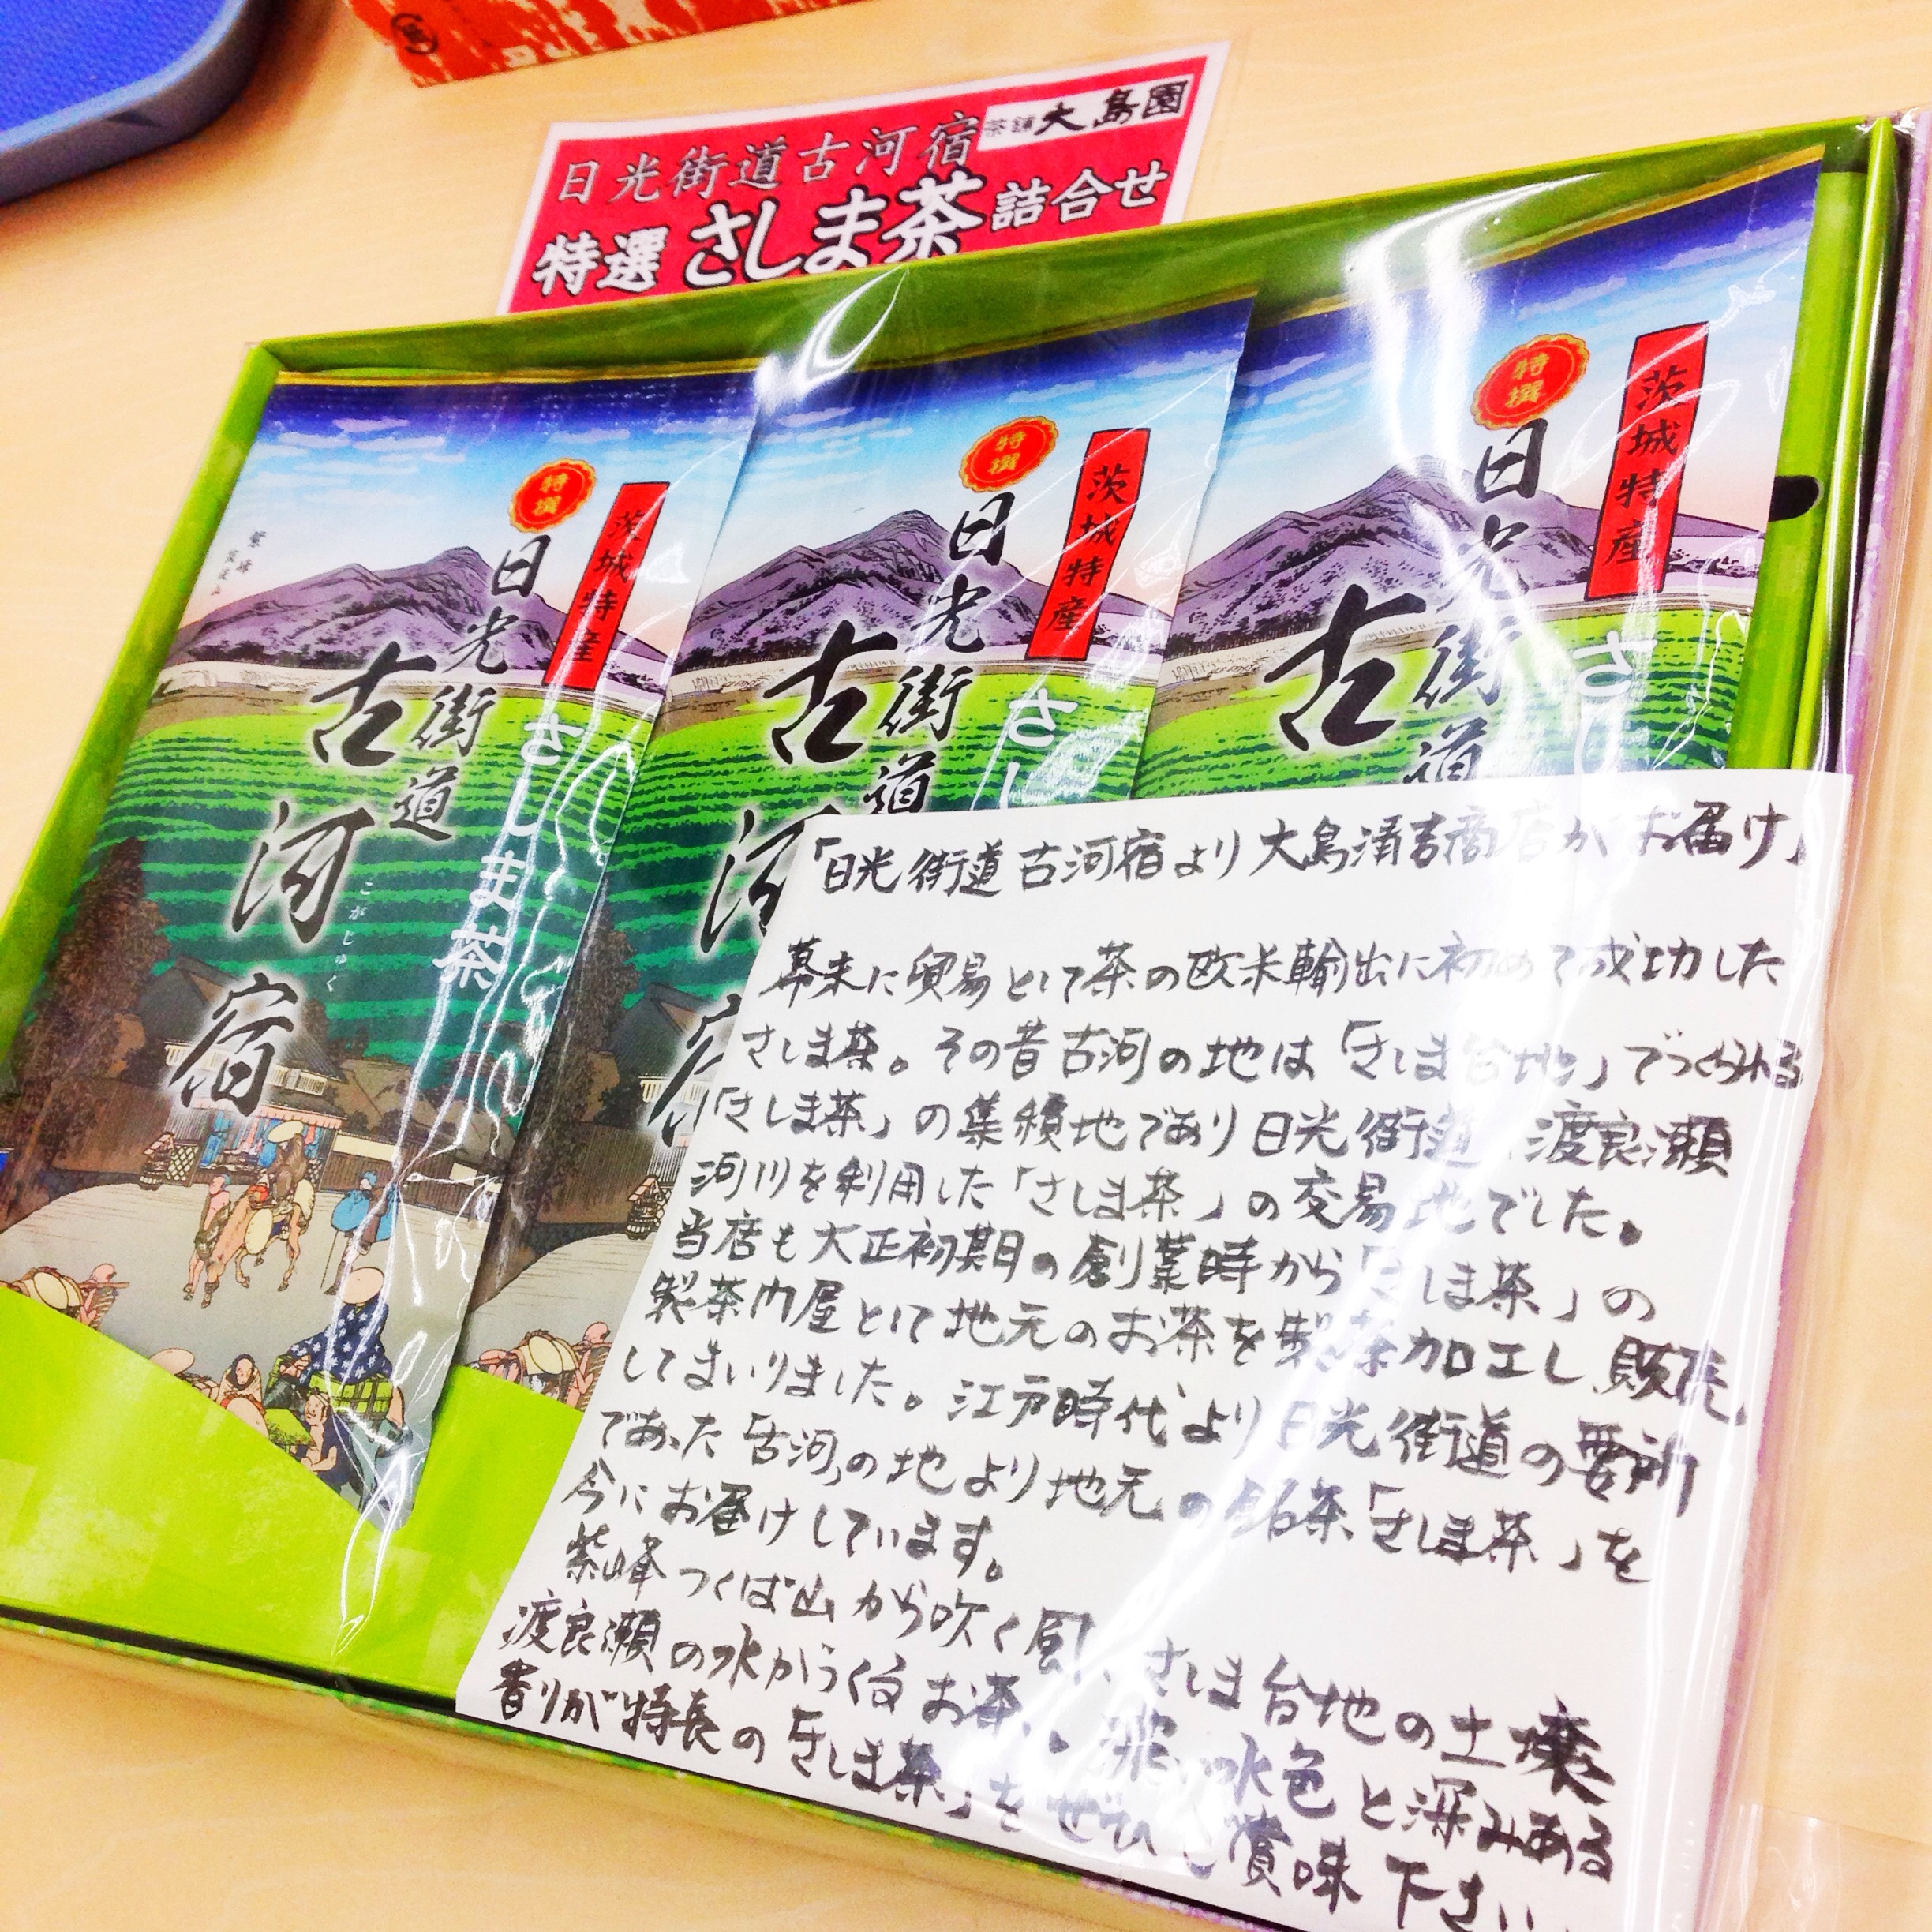 日光街道古河宿
茶舗 大島園
特選 さしま茶 詰合せ
特撰
茨城特産
日光街道
古河宿
こがしゅく
さしま茶
特撰
茨城特産
日光街道
古河宿
さし
特撰
茨城特産
日光街道
古
さし
「日光街道古河宿より大島涌吉商店がお届け」
幕末に貿易として茶の欧米輸出に初めて成功した
さしま茶。その昔古河の地は「さしま台地」でつくられる
「さしま茶」の集積地であり日光街道、渡良瀬
河川を利用した「さしま茶」の交易地でした。
当店も大正初期の創業時から「さしま茶」の
製茶内屋として地元のお茶を製茶加工し、販売
してまいりました。江戸時代より日光街道の要所
であった「古河」の地より地元の銘茶「さしま茶」を
今にお届けしています。
紫峰つくば山から吹く風、さしま台地の土壌
渡良瀬の水からくるお茶、水色と深みある
香りが特長の「さしま茶」をぜひご賞味下さい